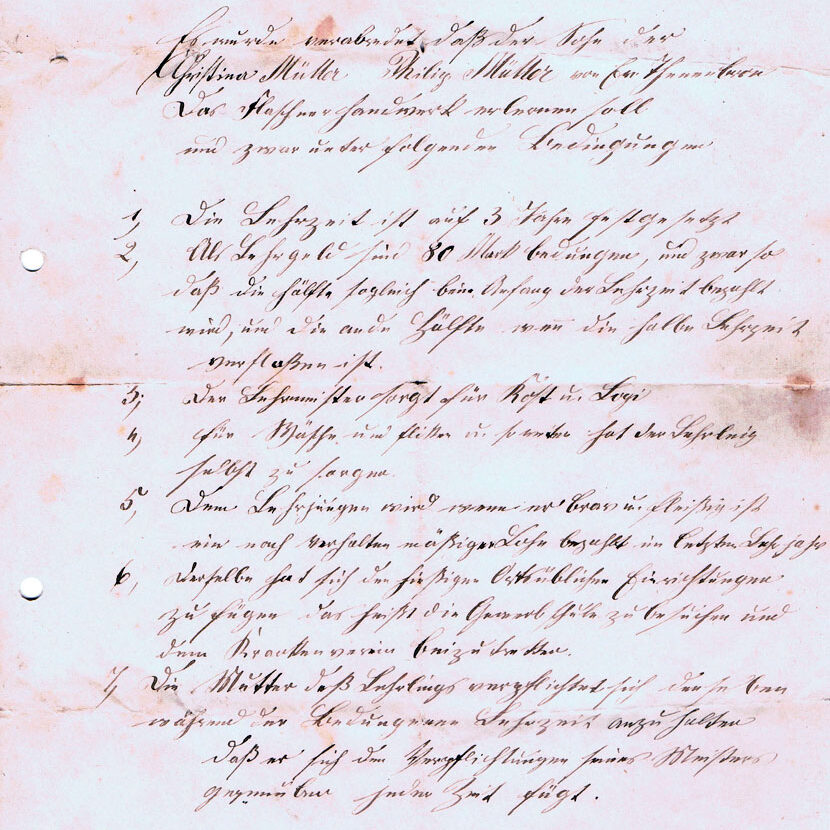 Es wurde verabredet daß der Sohn der
Christina Müller Philip Müller von Ev. Thennenbronn
Das Flaschner handwerk erlernen soll
und zwar unter folgenden Bedingungen
1, Die Lehrzeit ist auf 3 Jahre festgesetzt
2, Als Lehrgeld sind 80 Mark bedungen, und zwar so
daß die hälfte sogleich beim Anfang der Lehrzeit bezahlt
wird, und die ande Hälfte wen die halbe Lehrzeit
verfloßen ist.
3, Der Lehrmeister sorgt für Kost u. Logi
4, für Wäsche und fliken u. so weiter hat der Lehrling
selbst zu sorgen.
5, Dem Lehrjungen wird wenn er brav u. fleisig ist
ein nach verhalten mäßiger Lohn bezahlt im letzten Lehrjahr
6, Derselbe hat sich den hießigen Ortsüblichen Einrichtungen
zu fügen das heißt die Gewerbschule zu besuchen und
dem Krankenverein beizutretten.
7, Die Mutter deß Lehrlings verpflichtet sich denselben
während der Bedungenen Lehrzeit anzuhalten
daß er sich den Verpflichtungen seines Meisters
gegenüber jeder Zeit fügt.